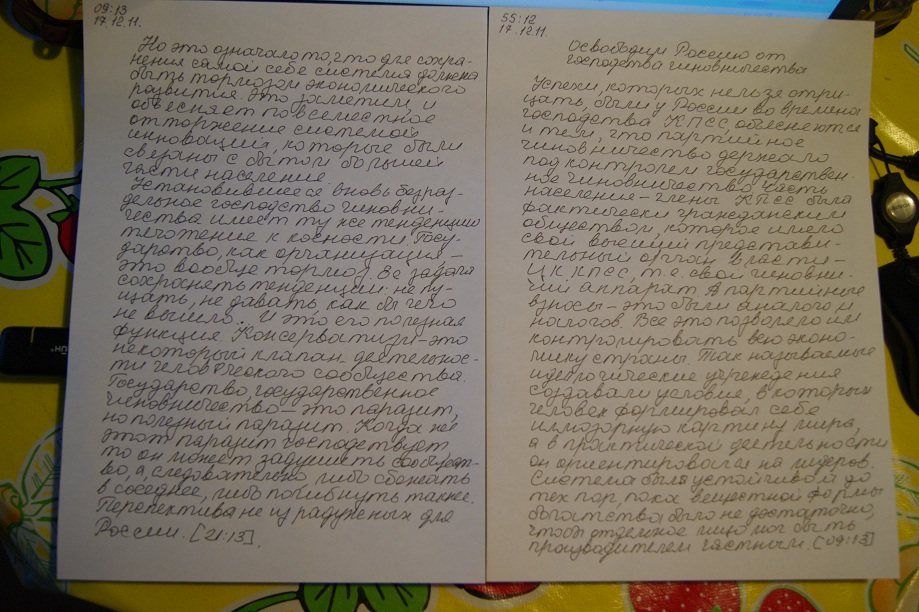 09:13
17.12.11.
Но это означало то, что для сохра-
нения самой себе система должна
быть тормозом экономического
развития. Это заметим, и
объясняет повсеместное
отторжение системой
инноваций, которые были
связаны с бытом большей
части населения.
Установившееся вновь безраз-
дельное господство чиновни-
чества имеет ту же тенденцию
тяготение к косности. Госу-
дарство, как организация –
это вообще тормоз. Её задача
сохранять тенденции: не пу-
щать, не давать, как бы чего
не вышло. И это его полезная
функция. Консерватизм – это
некоторый клапан деятельнос-
ти человеческого сообщества.
Государство, государственное
чиновничество – это паразит,
но полезный паразит. Когда же
этот паразит господствует
то он может задушить сообщест-
во, а, следовательно, либо сбежать
в соседнее, либо погибнуть также.
Перспектива не из радужных для
России. [21:13].
55:12
17.12.11.
Освободим Россию от
господства чиновничества
Успехи, которых нельзя отри-
цать, были у России во времена
господства КПСС, объясняются
и тем, что партийное
чиновничество держало
под контролем государствен-
ное чиновничество. Часть
населения – члены КПСС была
фактически гражданским
обществом, которое имело
свой высший представи-
тельный орган власти –
ЦК КПСС, т.е. свой чиновни-
чий аппарат. А партийные
взносы – это были аналогом
налогов. Все это позволяло им
контролировать всю эконо-
мику страны. Так называемые
идеологические учреждения
создавали условия, в которых
человек формировал себе
иллюзорную картину мира,
а в практической деятельности
он ориентировался на лидеров.
Система была устойчивой до
тех пор, пока вещественной формы
богатства было не достаточно,
чтобы отдельное лицо мог быть
производителем частным. [09:13]